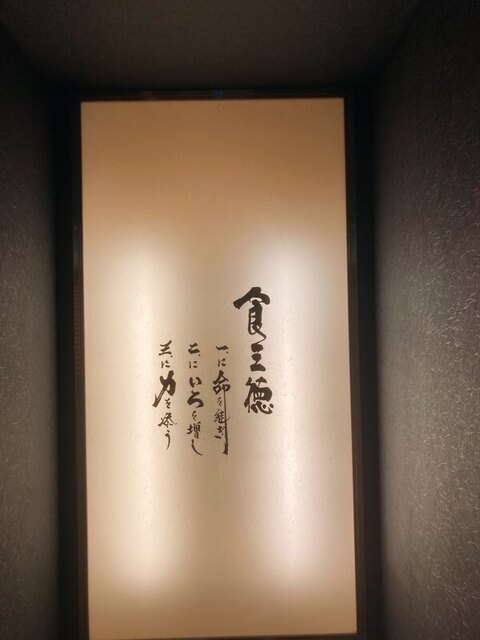 食三徳
一、に命を継ぎ
二、にいろを増し
三に力を添う